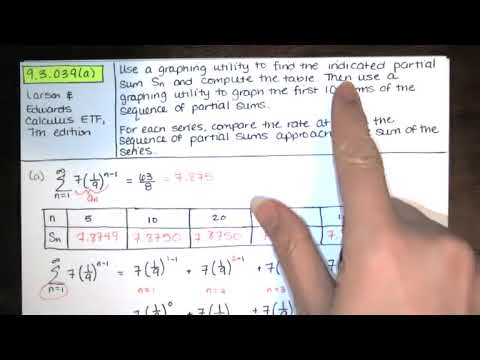 9.3.039(a)
Larson &
Edwards
Calculus ETF,
7th edition
Use a graphing utility to find the indicated partial
sum Sn and compute the table. Then use a
graphing utility to graph the first 10 of the
sequence of partial sums.
For each series, compare the rate at the
sequence of partial sums approach sum of the
series.
(a) ∞ Σ n=1 7(1/9)^(n-1) = 63/8 = 7.875
an
n 5 10 20
Sn 7.8749 7.8750 7.8750
∞ Σ n=1 7(1/9)^(n-1) = 7(1/9)^(1-1) + 7(1/9)^(2-1) + 7(
n=1 n=2 n=3
= 7(1/9)^0